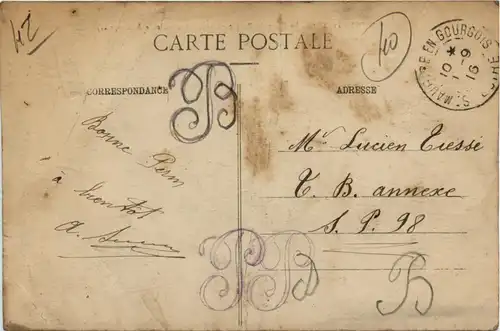 42
CARTE POSTALE
40
ST MAURICE EN GOURGOIS LOIRE
10 - 9
16
CORRESPONDANCE
ADRESSE
Bonne
à bientôt
Mr Lucien Tessé
T. B. annexe
S. P. 98
B